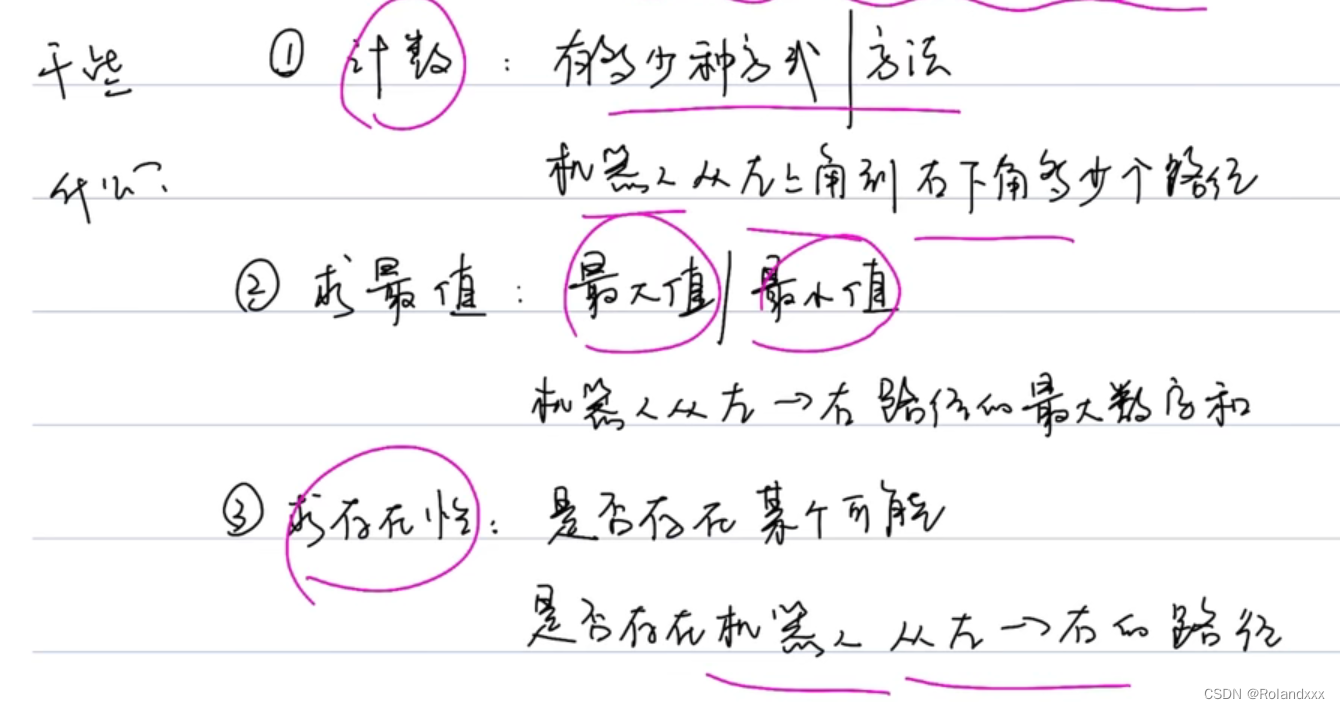 干些 ① 计数：有多少种方式|方法
什么? 机器人从左上角到右下角多少个路径
② 求最值：最大值|最小值
机器人从左→右路径的最大数字和
③ 求存在性：是否存在某个可能
是否存在机器人从左→右的路径
CSDN @Rolandxxx